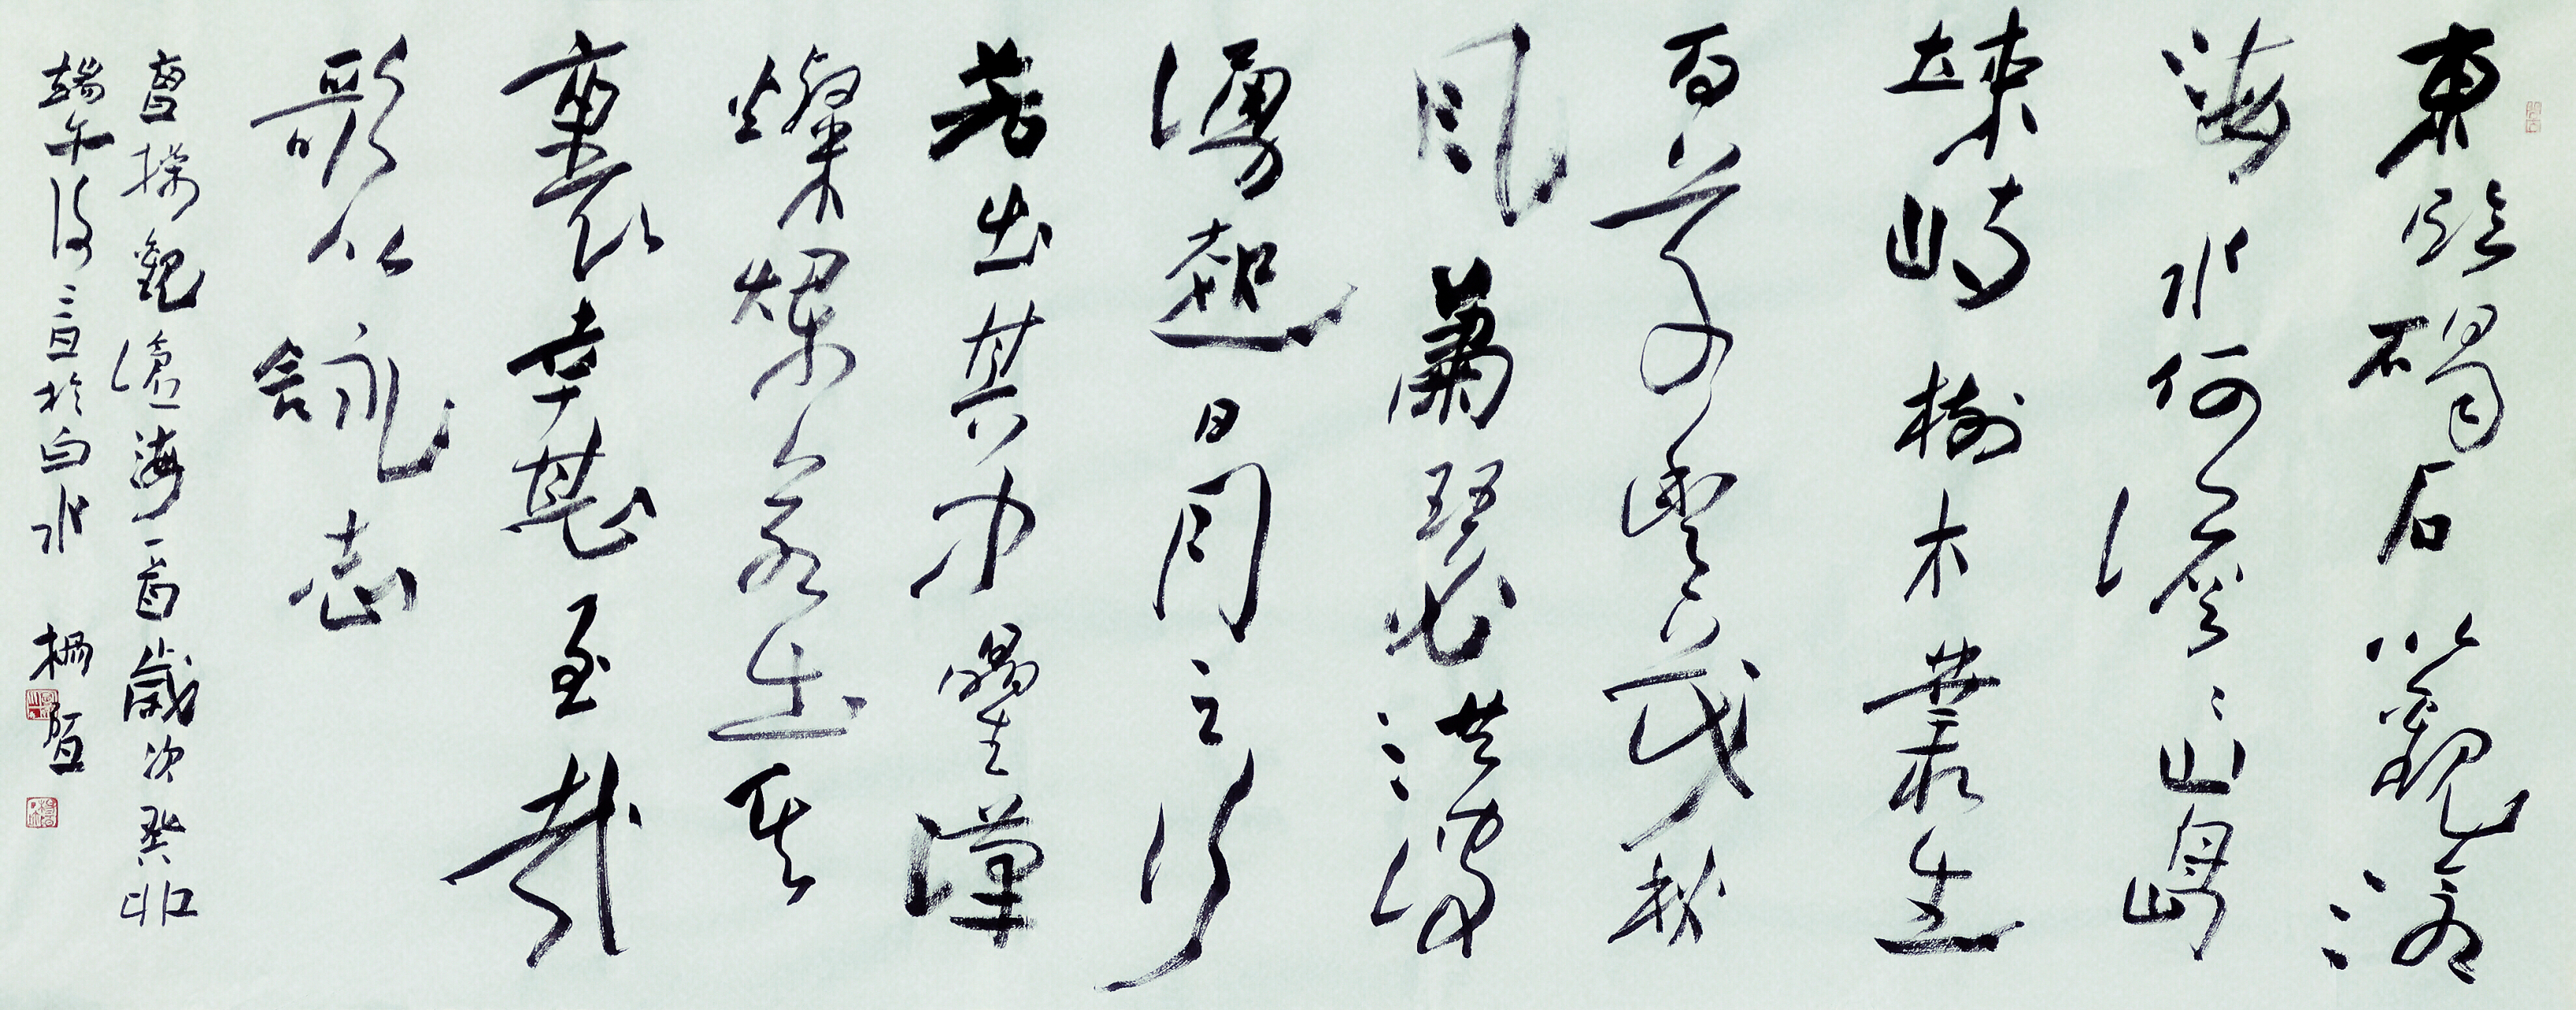 東臨碣石以觀滄
海水何澹〻山島
竦峙樹木叢生
百草豐茂秋
風蕭瑟洪波
湧起日月之行
若出其中星漢
燦爛若出其
裏幸甚至哉
歌以詠志
曹操觀滄海一首歲次癸卯
端午後於白水